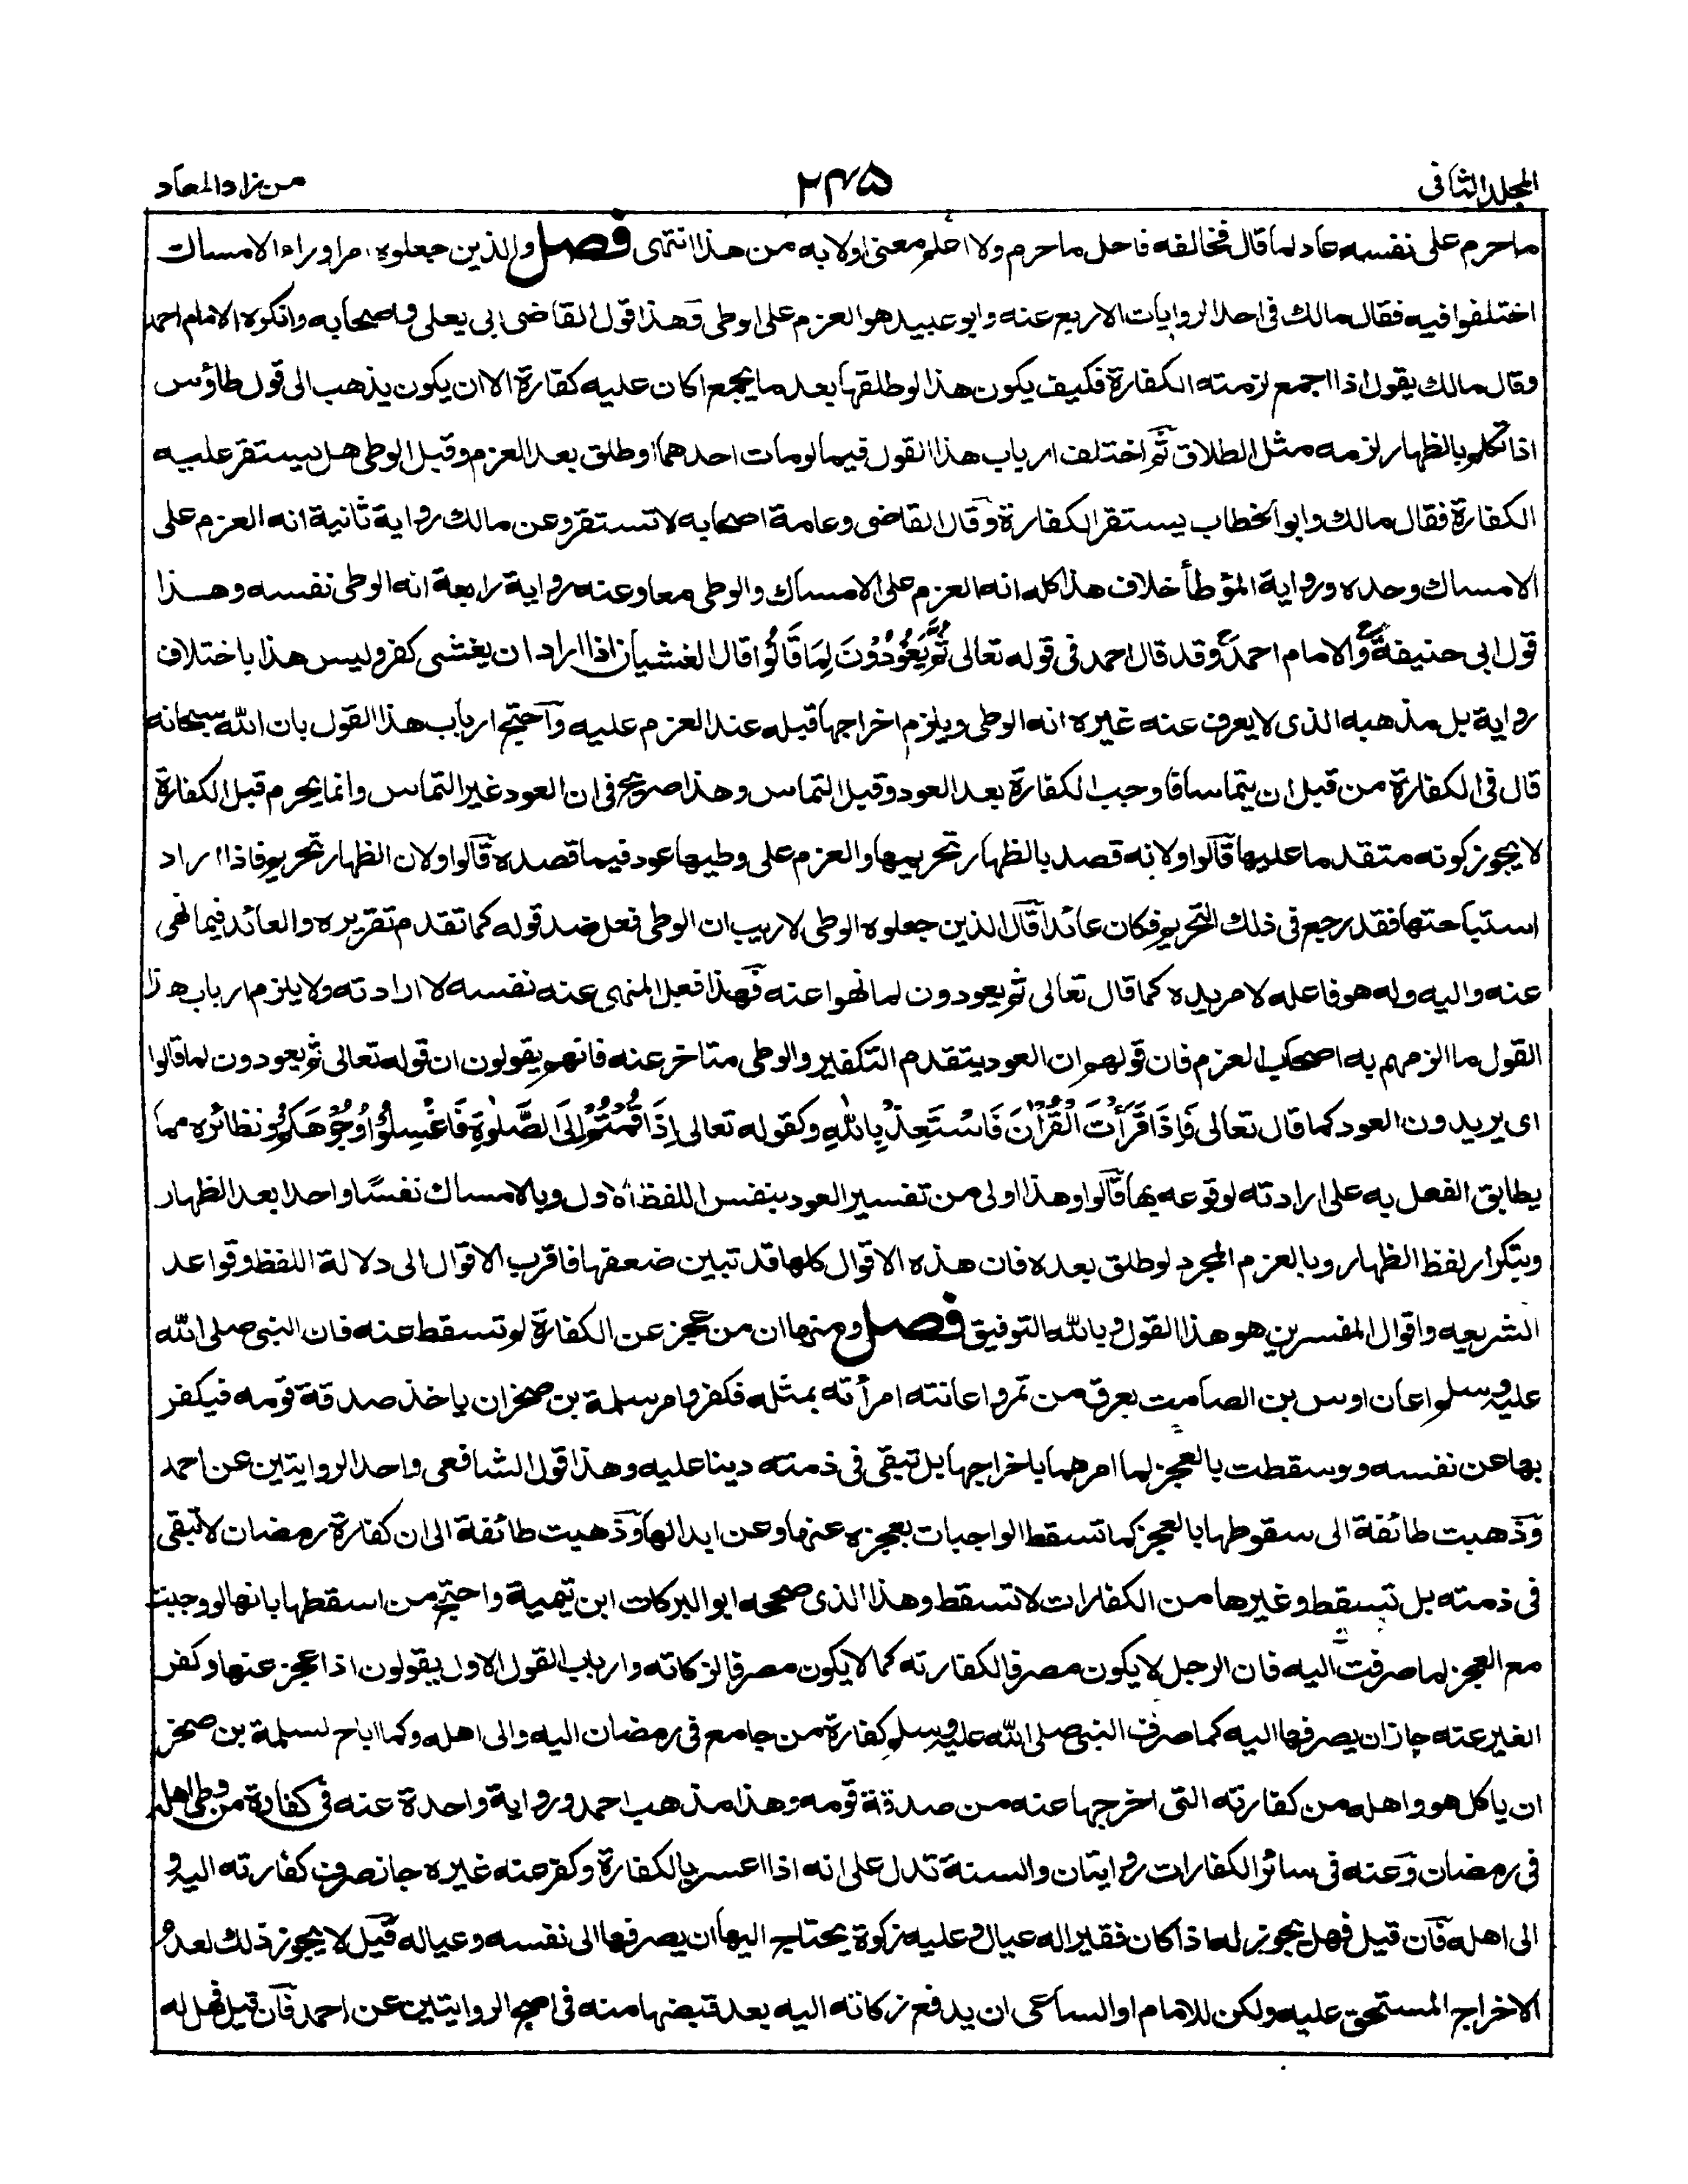 المجلد الثانی
۲۴۵
من زاد المعاد
ما حرم علی نفسه عاد لما قال فخالفه فاحل ما حرم ولا اعلم معنی اولا به من هذا انتهی فصل والذین جعلوه امرا وراء الامساك
اختلفوا فیه فقال مالك فی احدا الروایات الاربع عنه وابو عبید هو العزم علی الوطی وهذا قول القاضی ابی یعلی واصحابه وانکره الامام احمد
وقال مالك یقول اذا اجمع لزمته الکفارة فکیف یکون هذا لو طلقها بعد ما یجمع اکان علیه کفارة الا ان یکون یذهب الی قول طاؤس
اذا تکلم بالظهار لزمه مثل الطلاق ثم اختلف ارباب هذا القول فیما لو مات احدهما او طلق بعد العزم وقبل الوطی هل یستقر علیه
الکفارة فقال مالك وابو الخطاب یستقر الکفارة وقال القاضی وعامة اصحابه لا تستقر وعن مالك روایة ثانیة انه العزم علی
الامساك وحده وروایة المؤطأ خلاف هذا کله انه العزم علی الامساك والوطی معا وعنه روایة رابعة انه الوطی نفسه وهذا
قول ابی حنیفة والامام احمد وقد قال احمد فی قوله تعالی ثُمَّ یَعُوْدُوْنَ لِمَا قَالُوْا قال الغشیان اذا اراد ان یغشی کفر ولیس هذا باختلاف
روایة بل مذهبه الذی لا یعرف عنه غیره انه الوطی ویلزم اخراجها قبله عند العزم علیه واحتج ارباب هذا القول بان الله سبحانه
قال فی الکفارة من قبل ان یتماسا فاوجب الکفارة بعد العود وقبل التماس وهذا صریح فی ان العود غیر التماس وانما یحرم قبل الکفارة
لا یجوز کونه متقدما علیها قالوا ولانه قصد بالظهار تحریمها والعزم علی وطیها عود فیما قصده قالوا ولان الظهار تحریم فاذا اراد
استباحتها فقد رجع فی ذلك التحریم فکان عائدا قال الذین جعلوه الوطی لا ریب ان الوطی فعل ضد قوله کما تقدم تقریره والعائد فیما نهی
عنه والیه وله هو فاعله لا مریده کما قال تعالی ثم یعودون لما نهوا عنه فهذا فعل المنهی عنه نفسه لا ارادته ولا یلزم ارباب هذا
القول ما الزمهم به اصحاب العزم فان قولهم ان العود یتقدم التکفیر والوطی متاخر عنه فانهم یقولون ان قوله تعالی ثم یعودون لما قالوا
ای یریدون العود کما قال تعالی فَاِذَا قَرَأْتَ الْقُرْاٰنَ فَاسْتَعِذْ بِاللّٰهِ وکقوله تعالی اِذَا قُمْتُمْ اِلَی الصَّلٰوةِ فَاغْسِلُوْا وُجُوْهَکُمْ ونظائره مما
یطابق الفعل به علی ارادته لوقوعه بها قالوا وهذا اولی من تفسیر العود بنفس اللفظ الاول وبالامساك نفسًا واحدا بعد الظهار
وبتکرار لفظ الظهار وبالعزم المجرد لو طلق بعده فان هذه الاقوال کلها قد تبین ضعفها فاقرب الاقوال الی دلالة اللفظ وقواعد
الشریعه واقوال المفسرین هو هذا القول وبالله التوفیق فصل ومنها ان من عجز عن الکفارة لم تسقط عنه فان النبی صلی الله
علیه وسلم اعان اوس بن الصامت بعرق من تمر واعانته امرأته بمثله فکفر وامر سلمة بن صخر ان یاخذ صدقة قومه فیکفر
بها عن نفسه ولو سقطت بالعجز لما امرهما باخراجها بل تبقی فی ذمته دینا علیه وهذا قول الشافعی واحد الروایتین عن احمد
وذهبت طائفة الی سقوطها بالعجز کما تسقط الواجبات بعجزه عنها وعن ابدالها وذهبت طائفة الی ان کفارة رمضان لا تبقی
فی ذمته بل تسقط وغیرها من الکفارات لا تسقط وهذا الذی صححه ابو البرکات ابن تیمیة واحتج من اسقطها بانها لو وجبت
مع العجز لما صرفت الیه فان الرجل لا یکون مصرفا لکفارته کما لا یکون مصرفا لزکاته وارباب القول الاول یقولون اذا عجز عنها وکفر
الغیر عنه جاز ان یصرفها الیه کما صرف النبی صلی الله علیه وسلم کفارة من جامع فی رمضان الیه والی اهله وکما اباح لسلمة بن صخر
ان یاکل هو واهله من کفارته التی اخرجها عنه من صدقة قومه وهذا مذهب احمد وروایة واحدة عنه فی کفارة من وطی اهله
فی رمضان وعنه فی سائر الکفارات روایتان والسنة تدل علی انه اذا اعسر بالکفارة وکفر عنه غیره جاز صرف کفارته الیه و
الی اهله فان قیل فهل یجوز له اذا کان فقیرا له عیال وعلیه زکوة یحتاج الیها ان یصرفها الی نفسه وعیاله قیل لا یجوز ذلك لعدم
الاخراج المستحق علیه ولکن للامام او الساعی ان یدفع زکاته الیه بعد قبضها منه فی اصح الروایتین عن احمد فان قیل فهل له